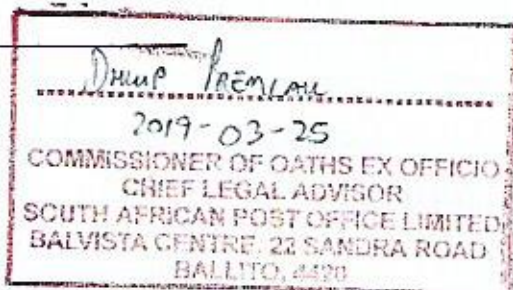 DHUP PREMLALL
2019-03-25
COMMISSIONER OF OATHS EX OFFICIO
CHIEF LEGAL ADVISOR
SOUTH AFRICAN POST OFFICE LIMITED
BALVISTA CENTRE, 22 SANDRA ROAD
BALLITO, 4420